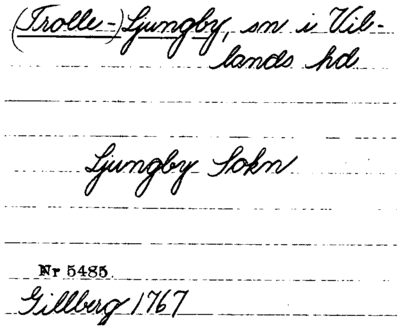 (Trolle-)Ljungby, sn i Vil-
lands hd
Ljungby Sokn
Nr 5485.
Gillberg 1767